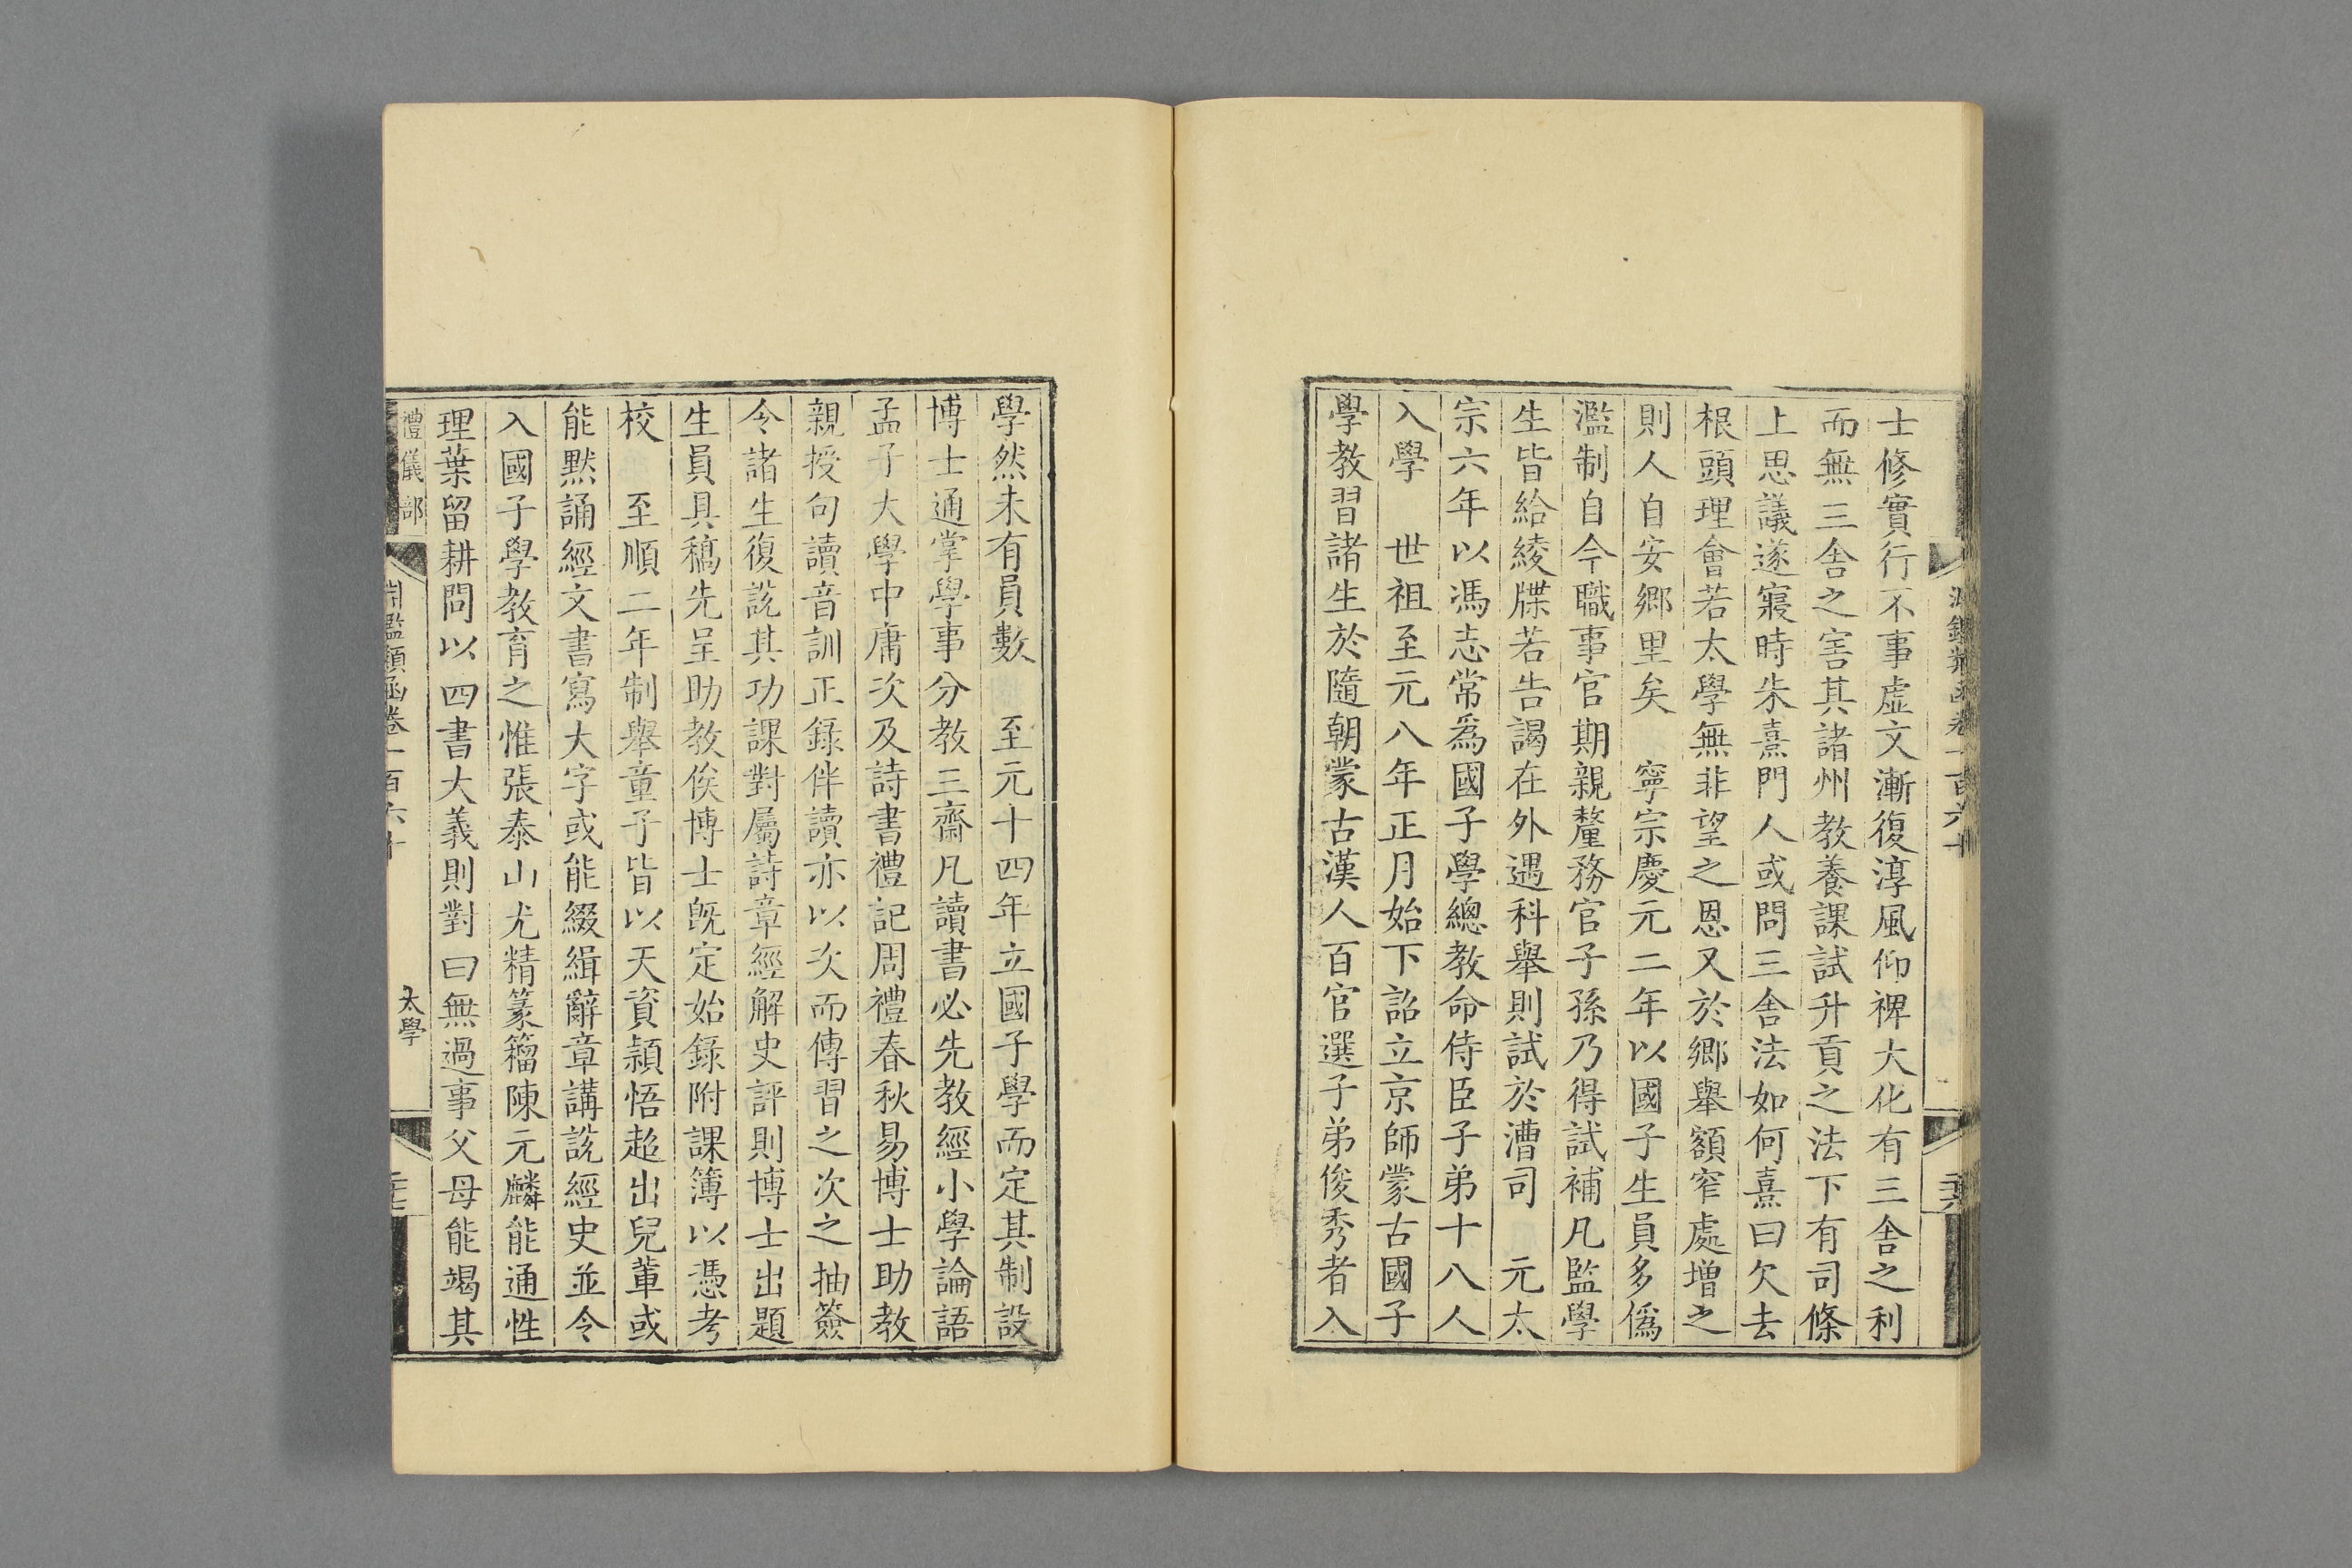 士修實行不事虛文漸復淳風仰裨大化有三舍之利
而無三舍之害其諸州教養課試升貢之法下有司條
上思議遂寢時朱熹門人或問三舍法如何熹曰欠去
根頭理會若太學無非望之恩又於鄉舉額窄處增之
則人自安鄉里矣　寧宗慶元二年以國子生員多僞
濫制自今職事官期親釐務官子孫乃得試補凡監學
生皆給綾牒若告謁在外遇科舉則試於漕司　元太
宗六年以馮志常爲國子學總教命侍臣子弟十八人
入學　世祖至元八年正月始下詔立京師蒙古國子
學教習諸生於隨朝蒙古漢人百官選子弟俊秀者入
學然未有員數　至元十四年立國子學而定其制設
博士通掌學事分教三齋凡讀書必先教經小學論語
孟子大學中庸次及詩書禮記周禮春秋易博士助教
親授句讀音訓正錄伴讀亦以次而傳習之次之抽簽
令諸生復說其功課對屬詩章經解史評則博士出題
生員具稿先呈助教俟博士既定始錄附課簿以憑考
校　至順二年制舉童子皆以天資頴悟超出兒輩或
能默誦經文書寫大字或能綴緝辭章講說經史並令
入國子學教育之惟張泰山尤精篆籀陳元麟能通性
理葉留耕問以四書大義則對曰無過事父母能竭其
禮儀部
淵鑑類函卷一百六十
太學